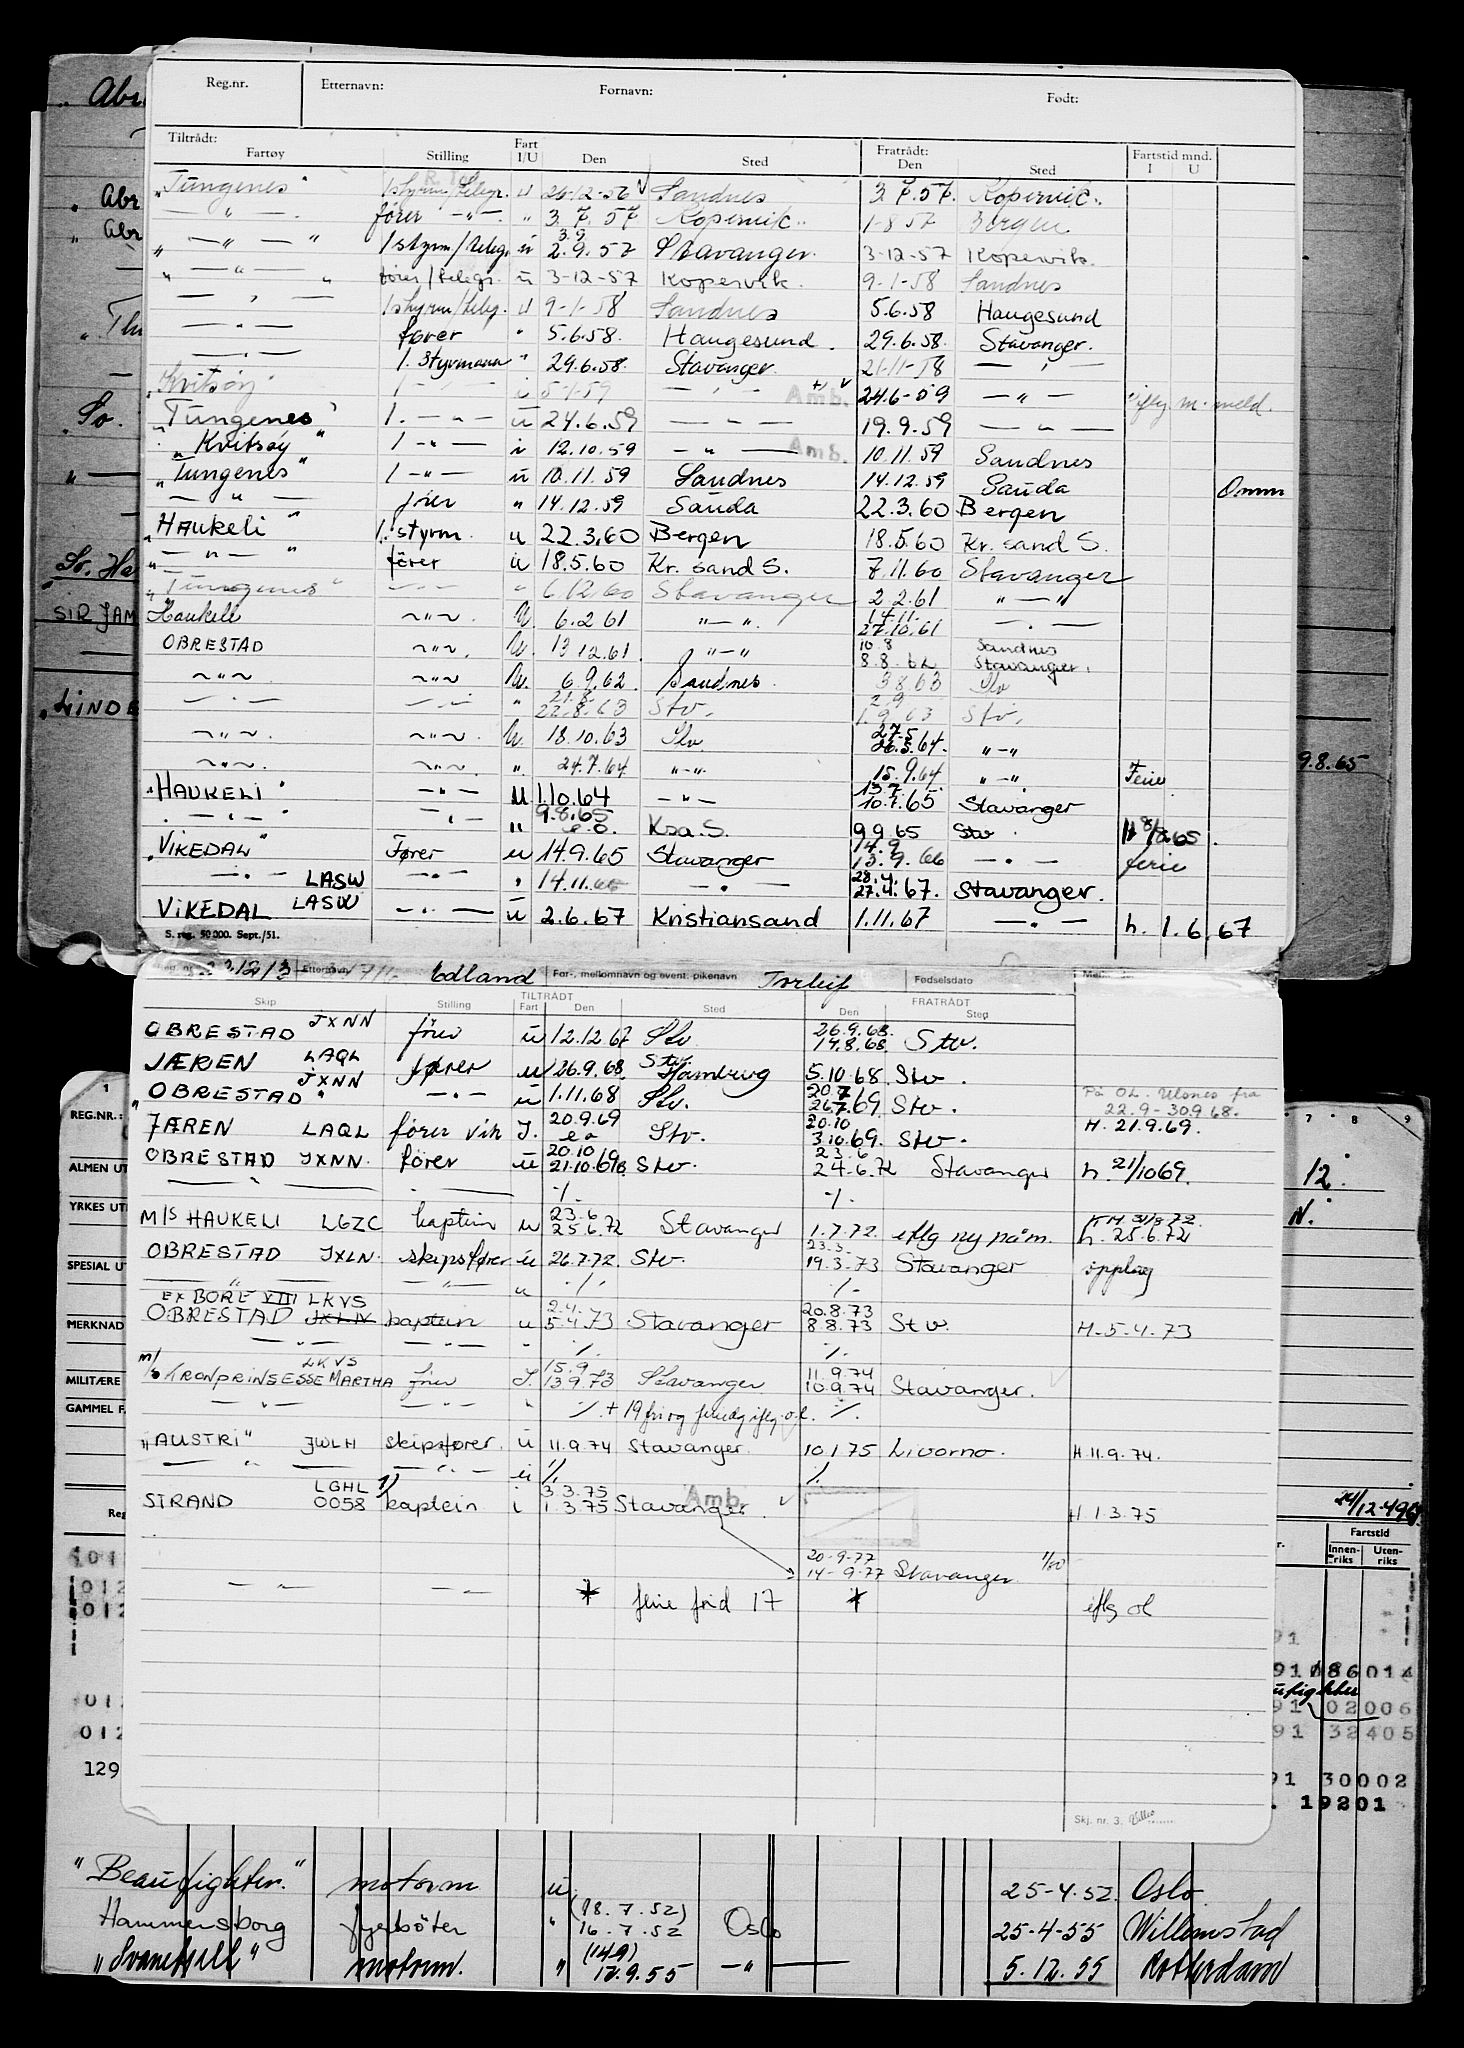 Reg.nr. Etternavn: Fornavn: Født:
Tiltrådt: Fart Fratrådt: Fartstid mnd.
Fartøy Stilling I/U Den Sted Den Sted I U
"Tungenes" 1styrm/telegr. u 26-12-56 Sandnes 3.7.57. Kopervik.
— " — fører — " — " 3.7.57 Kopervik. 1-8-57 Bergen
3.9
" — " — " 1styrm/telegr. u 2.9.57 Stavanger. 3-12-57 Kopervik.
" — " — " fører/telegr. u 3-12-57 Kopervik. 9-1-58 Sandnes
— " — 1styrm/teleg. u 9-1-58 Sandnes 5.6.58 Haugesund
— " — fører " 5.6.58. Haugesund. 29.6.58. Stavanger.
— " — 1. Styrmann " 29.6.58. Stavanger 21-11-58 — " —
"Kvitsøy" 1 — " — i 5-1-59 — " — Amb. 24.6-59 — " — iflg. m. meld.
"Tungenes" 1. — " — u 24.6.59 — " — 19.9.59 — " —
"Kvitsøy" 1 — " — i 12.10.59 — " — Amb. 10.11.59 Sandnes
"Tungenes" 1 — " — u 10.11.59 Sandnes 14.12.59 Sauda Omm
— " — fører " 14.12.59 Sauda 22.3.60 Bergen
"Haukeli" 1. styrm. u 22.3.60 Bergen 18.5.60 Kr. sand S.
" — " — " fører u 18.5.60 Kr. sand S. 7.11.60 Stavanger
"Tungenes" — " — " 6.12.60 Stavanger 2.2.61 " — "
14.11.
Haukeli ~ " ~. U. 6.2.61 " — ". 27.10.61 — " —
10.8 Sandnes
OBRESTAD ~ " ~. U. 13.12.61. " — " 8.8.62 Stavanger.
~ " ~ ~ " ~ U. 6.9.62. Sandnes. 3.8.63 Stv
21.8. 2.9
— " — — " — " 22.8.63 Stv. 1.9.63 Stv.
27.5
~ " ~. ~ " ~. U. 18.10.63 Stv 26.5.64. " — "
~ " ~. ~ " ~. ". 24.7.64 " — ". 15.9.64 " — ". Ferie
13.7.
"HAUKELI" — " — u 1.10.64 — " — 10.7.65 Stavanger
9.8.65
— " — " — " — u Krs. S. 9.9.65 Stv. H 8/8 65.
14.9
"VIKEDAL" Fører u 14.9.65 Stavanger 13.9.66 — " — ferie
28.4.
— " — LASW — " — " 14.11.66 — " — 27.4.67. Stavanger.
VIKEDAL LASW — " — u 2.6.67 Kristiansand 1.11.67 — " — h. 1.6.67
S. reg. 50 000. Sept./51.
Etternavn Edland For-, mellomnavn og event. pikenavn Torleif Fødselsdato
TILTRÅDT FRATRÅDT
Skip Stilling Fart Den Sted Den Sted
26.9.68.
OBRESTAD JXNN fører u 12.12.67 Stv 14.8.68. Stv.
Stv.
JÆREN LAQL fører u 26.9.68. Hamburg 5.10.68. Stv.
20.7
"OBRESTAD" JXNN — " — u 1.11.68 Stv. 26.7.69. Stv. På OL. Ulsnes fra
22.9-30.9.68.
20.9.69 20.10
JÆREN LAQL fører vik I. Stv. 3.10.69. Stv. H. 21.9.69.
20.10 23.6
OBRESTAD JXNN. fører u 21.10.69 Stv. 24.6.72 Stavanger h. 21/10 69.
— " — — " — ./. ./.
23.6 31/8 72.
M/S HAUKELI LGZC kaptein u 25.6.72 Stavanger 1.7.72. iflg ny påm. h. 25.6.72
23.3.
OBRESTAD JXLN. skipsfører u 26.7.72. Stv. 19.3.73 Stavanger opplag
— " — — " — u ./. ./.
EX BORE VIII LKVS 2.4.73 20.8.73
OBRESTAD JXLN kaptein u 5.4.73 Stavanger 8.8.73 Stv. H-5.4.73
— " — — " — " ./. ./.
LKVS 15.9. 11.9.74
M/S KRONPRINSESSE MARTHA fører I. 13.9.73 Stavanger 10.9.74 Stavanger.
— " — — " — " ./. + 19 fri og feriedg iflg. o.l. ./.
"AUSTRI" JWLH skipsfører. u 11.9.74 Stavanger. 10.1.75 Livorno. H. 11.9.74.
— " — — " — u ./. ./.
LGHL 1) 3.3.75
STRAND 0058 kaptein i 1.3.75 Stavanger. Amb. H 1.3.75
20-9-77
14-9-77 Stavanger.
— " — — " — ferie frid 17 iflg ol
Skj. nr. 3.
"Beaufighter." motorm u 25-4-52. Oslo
(18.7.52)
Hammersborg fyrbøter " 16.7.52 Oslo 25-4-55 Willemstad
(14.9)
"Svanefjell" motorm. " 12.9.55 — " — 5.12.55 Rotterdam
Abr
Abr
Abr
SIR JAM
LINDE
9.8.65
1 7 8 9
REG.NR.:
ALMEN UT
YRKES UT
SPESIAL U
MERKNAD
MILITÆRE
GAMMEL F.
12.
24/12-49
Fartstid
Innen-riks Uten-riks
91
91 086014
91 02006
91 32405
91 30002
. 19201
012
012
012
129